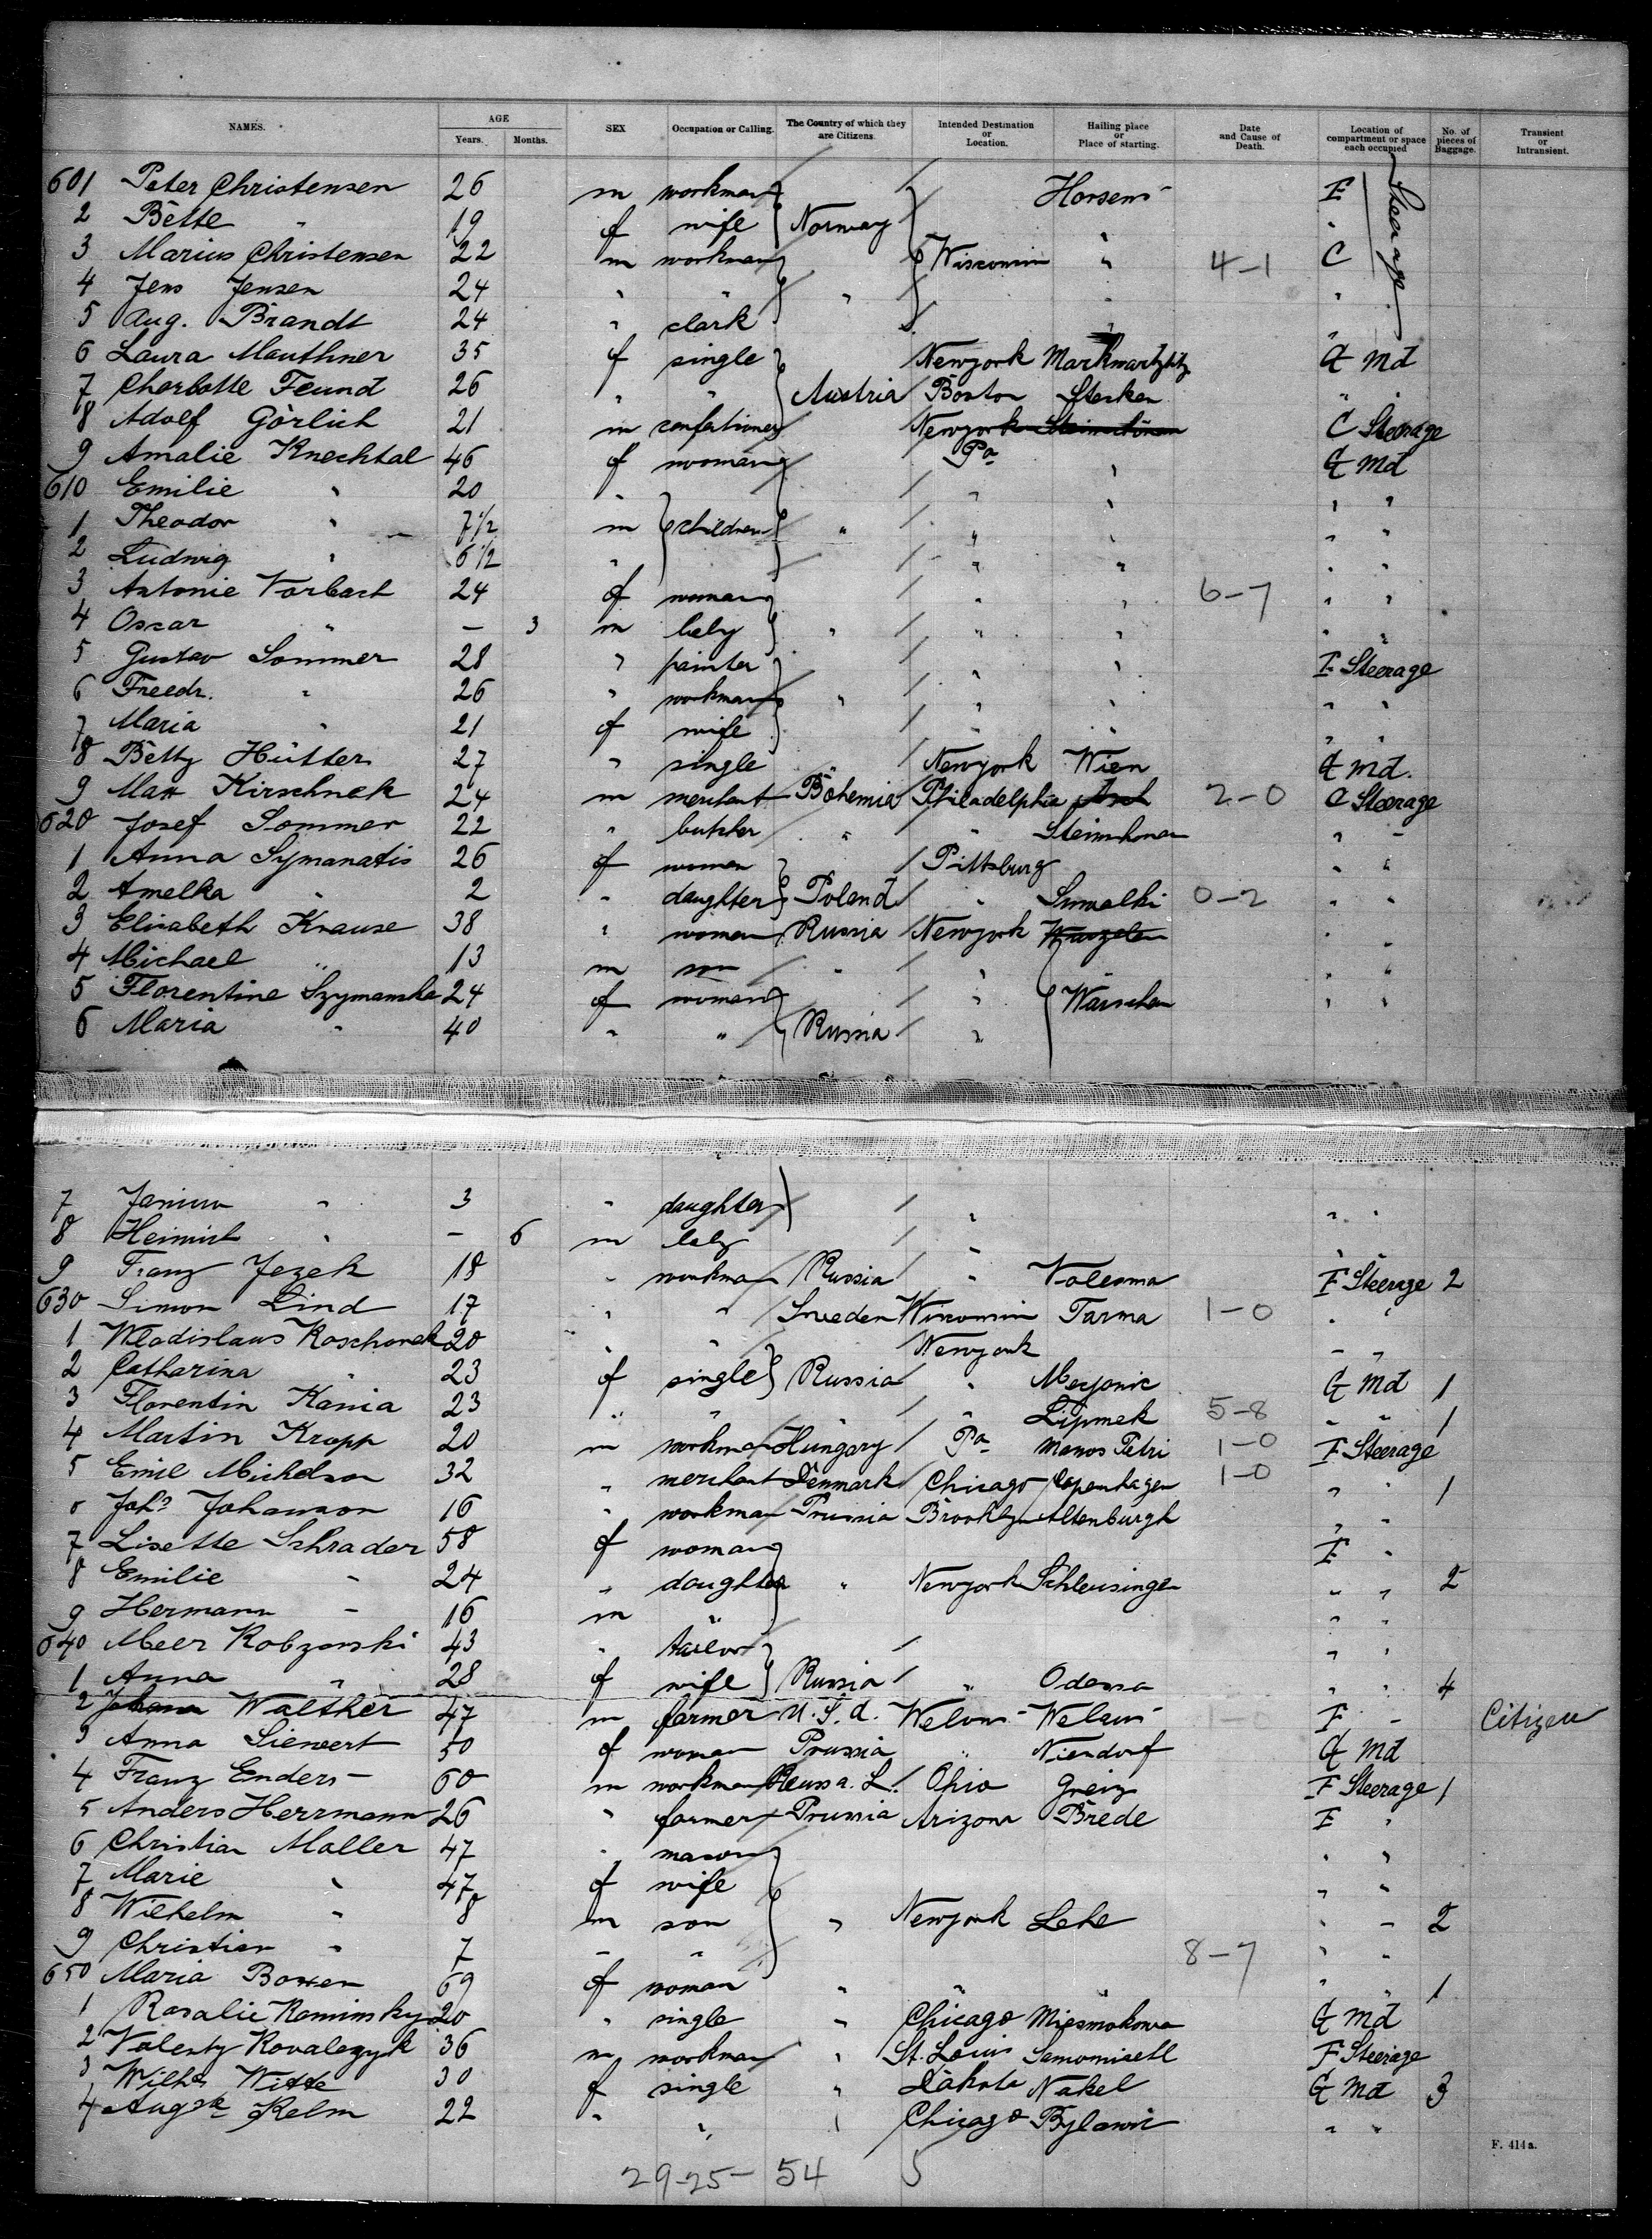 NAMES. AGE SEX Occupation or Calling. The Country of which they are Citizens. Intended Destination or Location. Hailing place or Place of starting. Date and Cause of Death. Location of compartment or space each occupied No. of pieces of Baggage. Transient or Intransient.
Years. Months.
601 Peter Christensen 26 m workman Horsens F Steerage
2 Bette " 19 f wife Norway " "
3 Marius Christensen 22 m workman Wisconsin " 4-1 C
4 Jens Jensen 24 " " " " "
5 Aug. Brandt 24 " clark " "
6 Laura Mauthner 35 f single Newyork G Md
7 Charlotte Feund 26 " " Austria Boston Sterken " "
8 Adolf Görlich 21 m Newyork C Steerage
9 Amalie Knechtal 46 f woman Pa " G Md
610 Emilie " 20 " " " " "
1 Theodor " 7 1/2 m children " " " " "
2 Ludwig " 6 1/2 " " " " "
3 Antonie Vorbach 24 f woman " " 6-7 " "
4 Oscar " - 3 m baby " " " " "
5 Gustav Sommer 28 " painter " " F Steerage
6 Friedr. " 26 " workman " " " " "
7 Maria " 21 f wife " " " "
8 Betty Hütter 27 " single " Newyork Wien G Md.
9 Max Kirschnek 24 m merchant Bohemia Philadelphia Asch 2-0 C Steerage
620 Josef Sommer 22 " butcher " " " "
1 Anna Symanatis 26 f woman Pittsburg " "
2 Amelka " 2 " daughter Poland " Suwalki 0-2 " "
3 Elisabeth Krause 38 " woman Russia Newyork " "
4 Michael " 13 m son " " " "
5 Florentine Szymanska 24 f woman " Warschau " "
6 Maria " 40 " " Russia "
7 " 3 " daughter " " "
8 Heinrich " - 6 m baby " "
9 Franz Jezek 18 " workman Russia " F Steerage 2
630 Simon Lind 17 " " Sweden Wisconsin Tarma 1-0 " "
1 Wladislaus Koschorek 20 " " Newyork " "
2 Catharina " 23 f single Russia " G Md 1
3 Florentin Kania 23 " " " Lipmek 5-8 " " 1
4 Martin Kropp 20 m workman Hungary Pa Petri 1-0 F Steerage
5 Emil Michelson 32 " merchant Denmark Chicago Copenhagen 1-0 " " 1
6 Johs Johannson 16 " workman Prussia Brooklyn Altenburgh " "
7 Lisette Schrader 58 f woman F "
8 Emilie " 24 " daughter " Newyork Schleusingen " " 2
9 Hermann " 16 m " " "
640 Meer Robzowski 43 " tailor " "
1 Anna " 28 f wife Russia " Odessa " " 4
2 Walther 47 m farmer U.S.a. F " Citizen
3 Anna Siewert 50 f woman Prussia " Niendorf G Md
4 Franz Enders 60 m workman Reuss a. L. Ohio Greiz F Steerage 1
5 Anders Herrmann 26 " farmer Prussia Arizona Brede F "
6 Christian Moller 47 " mason " "
7 Marie " 47 f wife " "
8 Wilhelm " 8 m son " Newyork Lehe " " 2
9 Christian " 7 " " 8-7 " "
650 Maria 69 f woman " " " 1
1 Rosalie Kominsky 20 " single " Chicago G Md
2 Valenty Kovalezyk 36 m workman " St. Louis F Steerage
3 Wilh. Witte 30 f single " Dakota Nakel G Md 3
4 Aug. Kelm 22 " " " Chicago " "
F. 414 a.
29-25-54 5